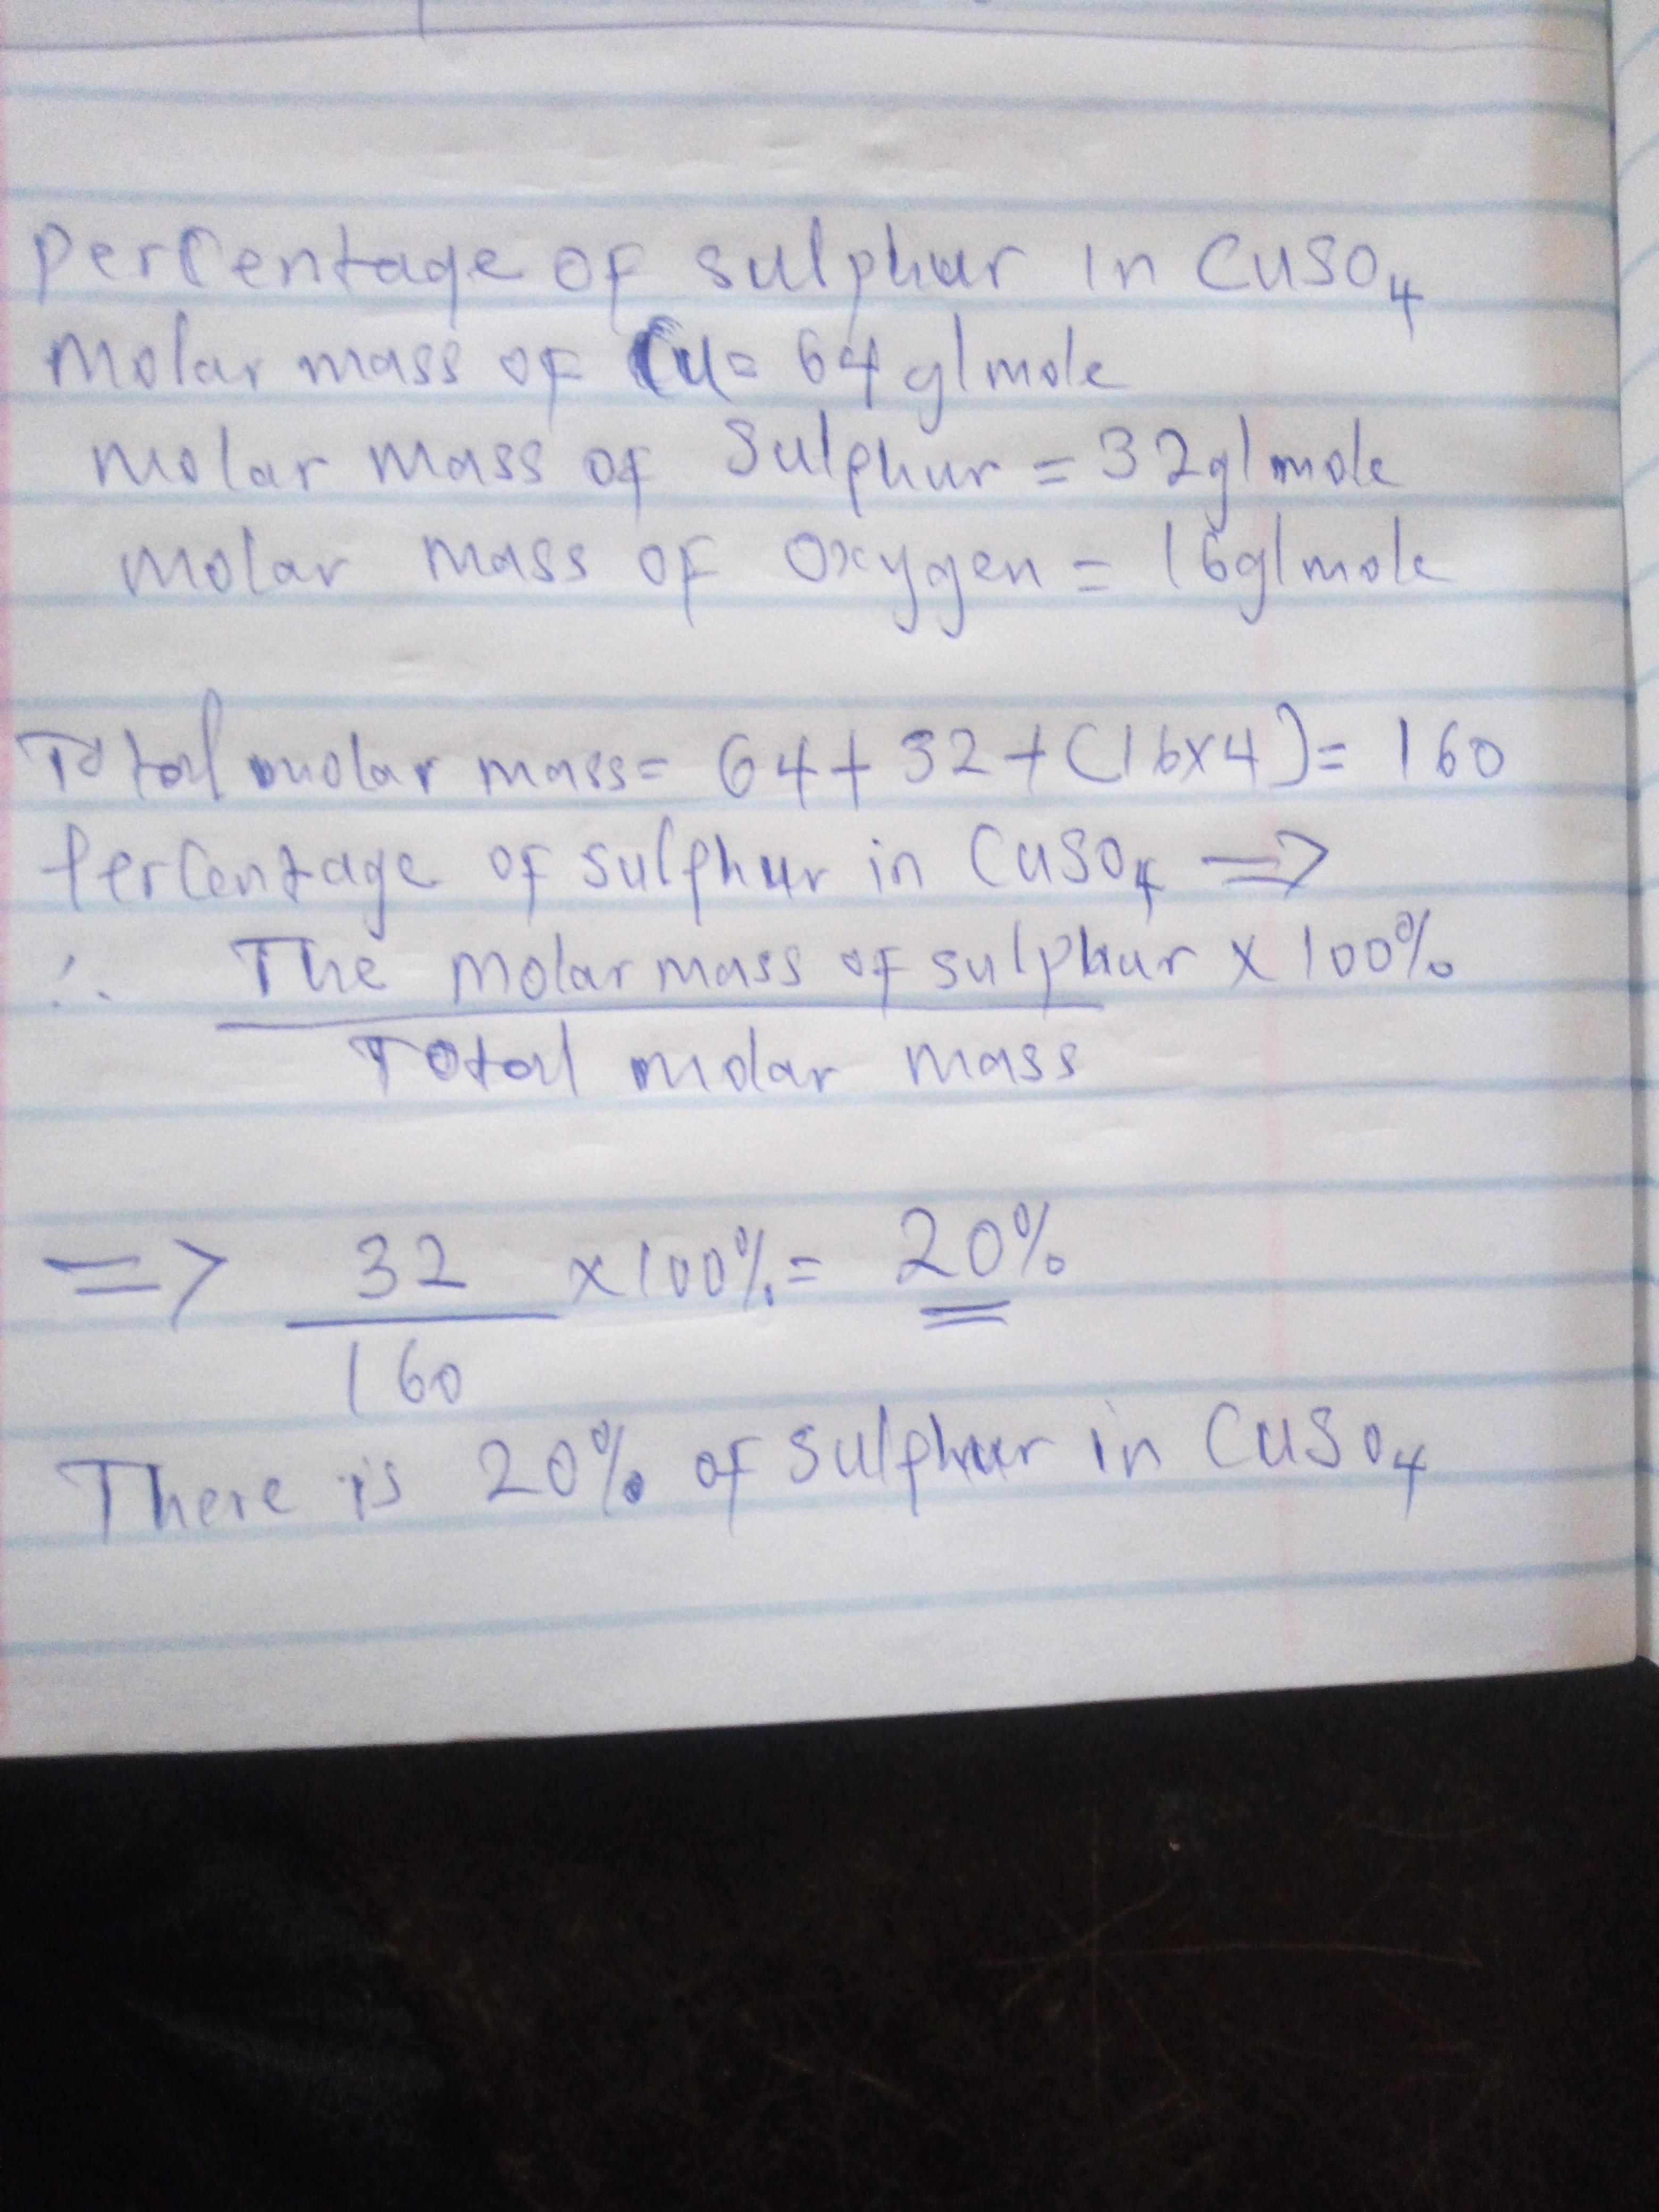 Percentage of sulphur in CuSO4
Molar mass of Cu = 64 g/mole
molar mass of Sulphur = 32g/mole
molar mass of Oxygen = 16g/mole
Total molar mass = 64 + 32 + (16x4) = 160
Percentage of sulphur in CuSO4 =>
∴ The molar mass of sulphur x 100%
Total molar mass
=> 32 x 100% = 20%
160
There is 20% of sulphur in CuSO4